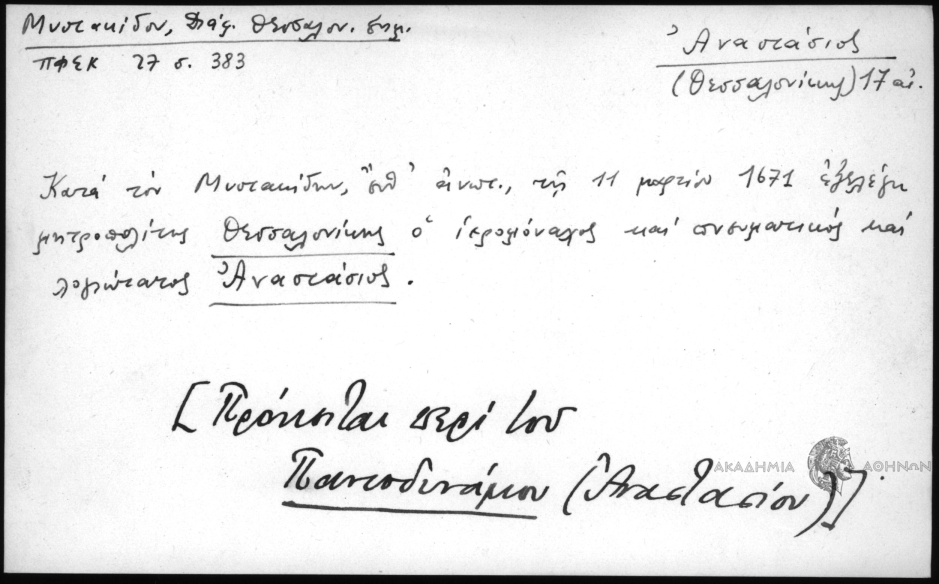 Μυστακίδου, Διάφ. Θεσσαλον. Σημ.
ΠΦΣΚ 27 σ. 383
Ἀναστάσιος
(Θεσσαλονίκης) 17 αἰ.
Κατά τόν Μυστακίδην, ἔνθ' ἀνωτ., τῇ 11 μαρτίου 1671 ἐξελέγη
μητροπολίτης Θεσσαλονίκης ὁ ἱερομόναχος καί πνευματικός καί
λογιώτατος Ἀναστάσιος.
[Πρόκειται περί του
Παντοδινάμου (Ἀναστασίου)].
ΑΚΑΔΗΜΙΑ ΑΘΗΝΩΝ